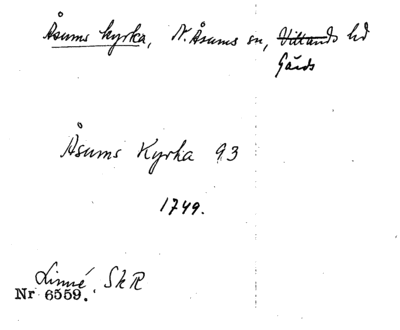 Åsums kyrka, N. Åsums sn, Villands hd
Gärds
Åsums Kyrka 93
1749.
Linné, Sk R
Nr 6559.